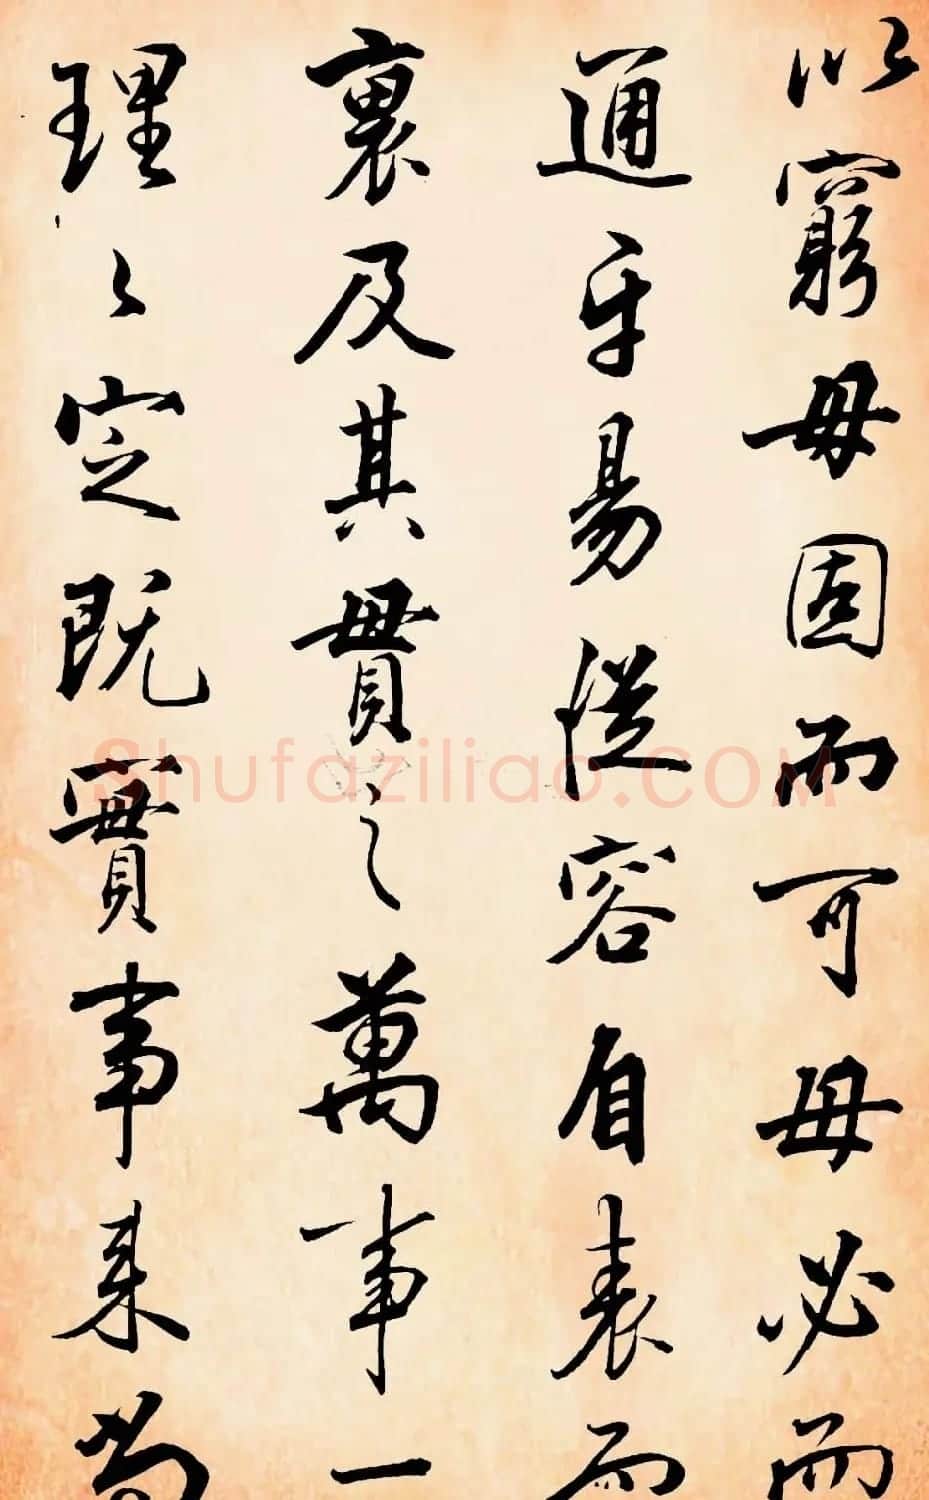 以窮毋固而可毋必而
通平易從容自表而
裏及其貫之萬事一
理〻定既實事来尚
Shufaziliao.COM